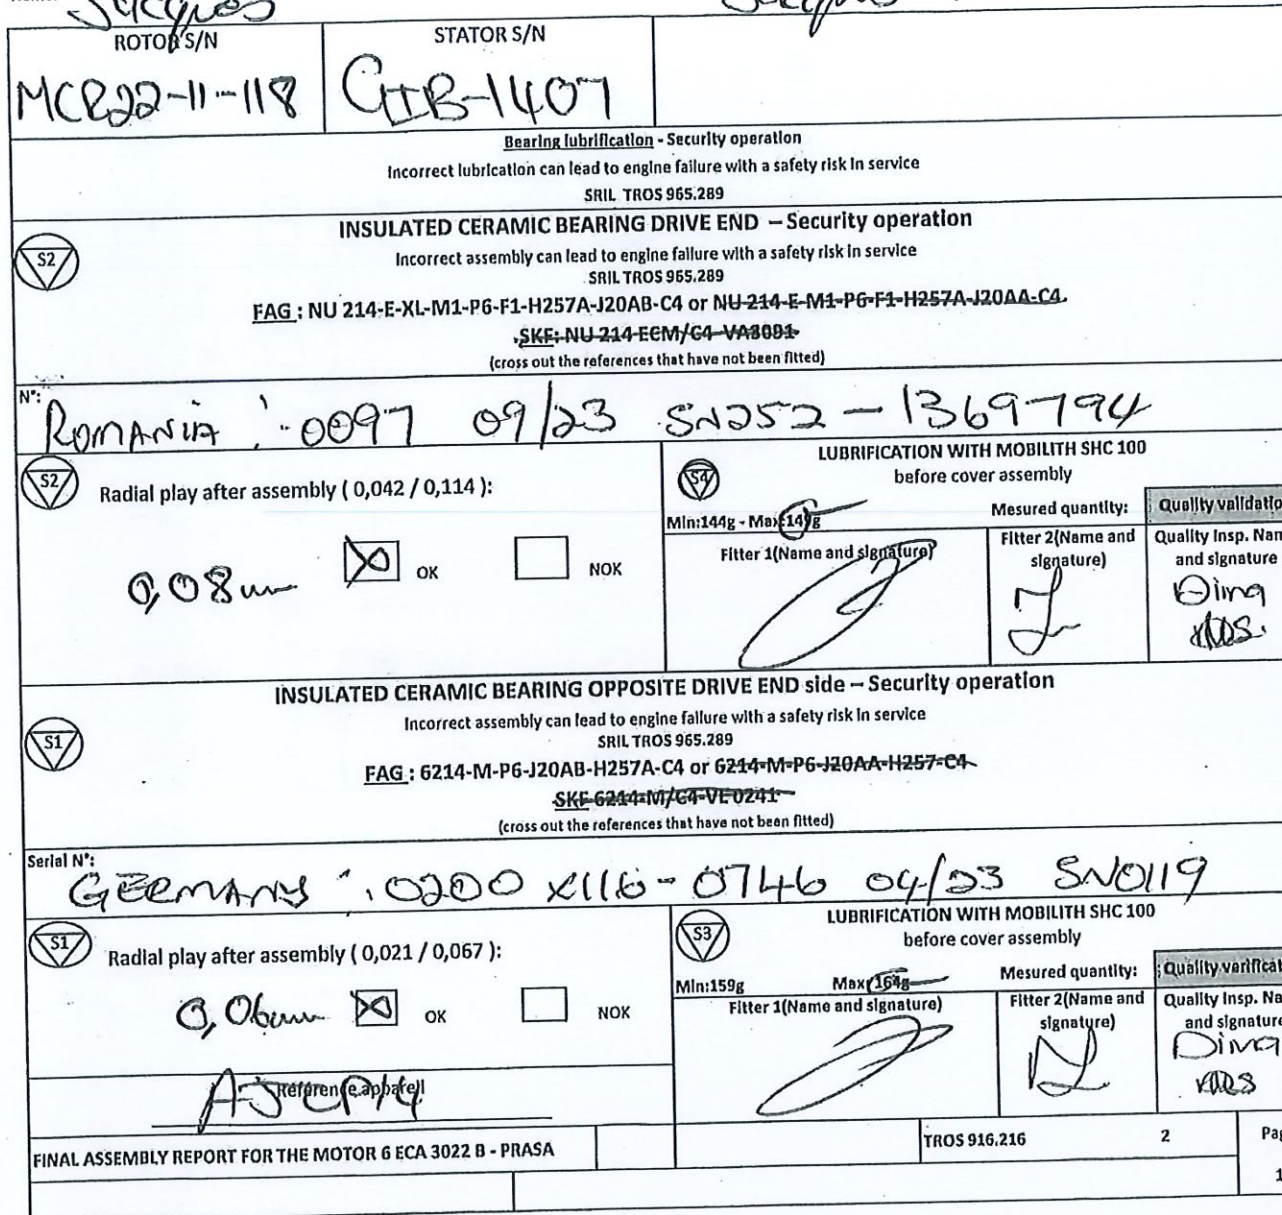 Jacques
ROTOR S/N
STATOR S/N
MCR22-11-118
GIB-1407
Bearing lubrification - Security operation
Incorrect lubrication can lead to engine failure with a safety risk in service
SRIL TROS 965.289
S2
INSULATED CERAMIC BEARING DRIVE END – Security operation
Incorrect assembly can lead to engine failure with a safety risk in service
SRIL TROS 965.289
FAG : NU 214-E-XL-M1-P6-F1-H257A-J20AB-C4 or NU-214-E-M1-P6-F1-H257A-J20AA-C4
SKF: NU 214 ECM/C4-VA3091
(cross out the references that have not been fitted)
N°:
ROMANIA : 0097 09/23 SN252 - 1369794
S2
Radial play after assembly ( 0,042 / 0,114 ):
0,08mm
OK
NOK
S4
LUBRIFICATION WITH MOBILITH SHC 100
before cover assembly
Min:144g - Max:149g
Mesured quantity:
Quality validatio
Fitter 1(Name and signature)
Fitter 2(Name and
signature)
Quality Insp. Nam
and signature
Dima
INSULATED CERAMIC BEARING OPPOSITE DRIVE END side – Security operation
S1
Incorrect assembly can lead to engine failure with a safety risk in service
SRIL TROS 965.289
FAG : 6214-M-P6-J20AB-H257A-C4 or 6214-M-P6-J20AA-H257-C4
SKF 6214-M/C4-VE0241
(cross out the references that have not been fitted)
Serial N°:
GERMANY : 0200 X116-0746 04/23 SN0119
S1
Radial play after assembly ( 0,021 / 0,067 ):
0,06mm
OK
NOK
Réference appareil
AJCP14
S3
LUBRIFICATION WITH MOBILITH SHC 100
before cover assembly
Min:159g
Max:164g
Mesured quantity:
Quality verificat
Fitter 1(Name and signature)
Fitter 2(Name and
signature)
Quality Insp. Na
and signature
Dima
FINAL ASSEMBLY REPORT FOR THE MOTOR 6 ECA 3022 B - PRASA
TROS 916.216
2
Pag
1